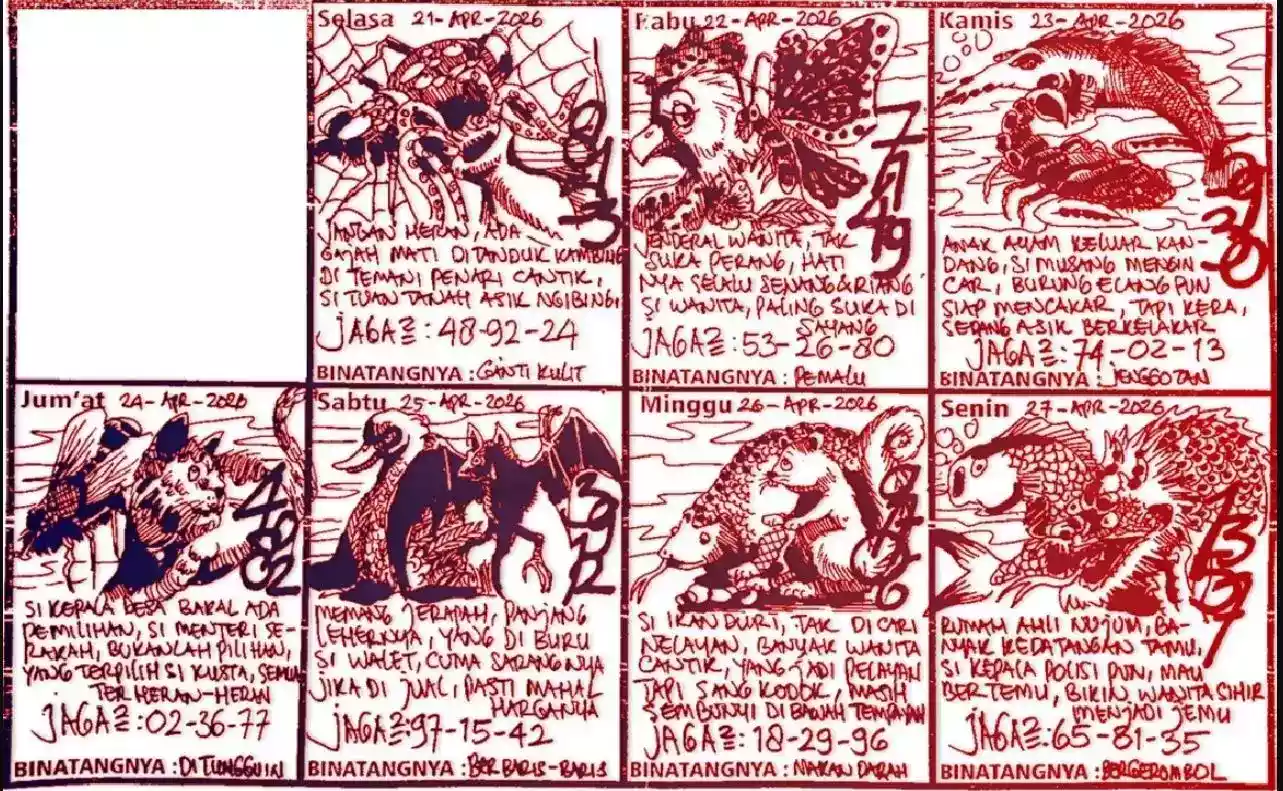 Selasa 21-APR-2026
JANGAN HERAN, ADA
GAJAH MATI DITANDUK KAMBING
DI TEMANI PENARI CANTIK,
SI TUAN TANAH ASIK NGIBING
JAGA2 : 48-92-24
BINATANGNYA : GANTI KULIT
Rabu 22-APR-2026
JENDERAL WANITA, TAK
SUKA PERANG, HATI
NYA SELALU SENANG & RIANG
SI WANITA, PALING SUKA DI
SAYANG
JAGA2 : 53-26-80
BINATANGNYA : PEMALU
Kamis 23-APR-2026
59
30
ANAK AYAM KELUAR KAN-
DANG, SI MUSANG MENGIN
CAR, BURUNG ELANG PUN
SIAP MENCAKAR, TAPI KERA,
SEDANG ASIK BERKELAKAR
JAGA2 : 74-02-13
BINATANGNYA : JENGGOTAN
Jum'at 24-APR-2026
SI KEPALA DESA BAKAL ADA
PEMILIHAN, SI MENTERI SE-
RAKAH, BUKANLAH PILIHAN,
YANG TERPILIH SI KUSTA, SEMUA
TERHERAN-HERAN
JAGA2 : 02-36-77
BINATANGNYA : DITUNGGUIN
Sabtu 25-APR-2026
MEMANG JERAPAH, PANJANG
LEHERNYA, YANG DI BURU
SI WALET, CUMA SARANGNYA
JIKA DI JUAL, PASTI MAHAL
HARGANYA
JAGA2 : 97-15-42
BINATANGNYA : BERBARIS-BARIS
Minggu 26-APR-2026
SI IKAN DURI, TAK DI CARI
NELAYAN, BANYAK WANITA
CANTIK, YANG JADI PELAYAN
TAPI SANG KODOK, MASIH
SEMBUNYI DI BAWAH TEMPAYAN
JAGA2 : 18-29-96
BINATANGNYA : MAKAN DARAH
Senin 27-APR-2026
RUMAH AHLI NUJUM, BA-
NYAK KEDATANGAN TAMU,
SI KEPALA POLISI PUN, MAU
BERTEMU, BIKIN WANITA CIHIR
MENJADI JEMU
JAGA2 : 65-81-35
BINATANGNYA : BERGEROMBOL